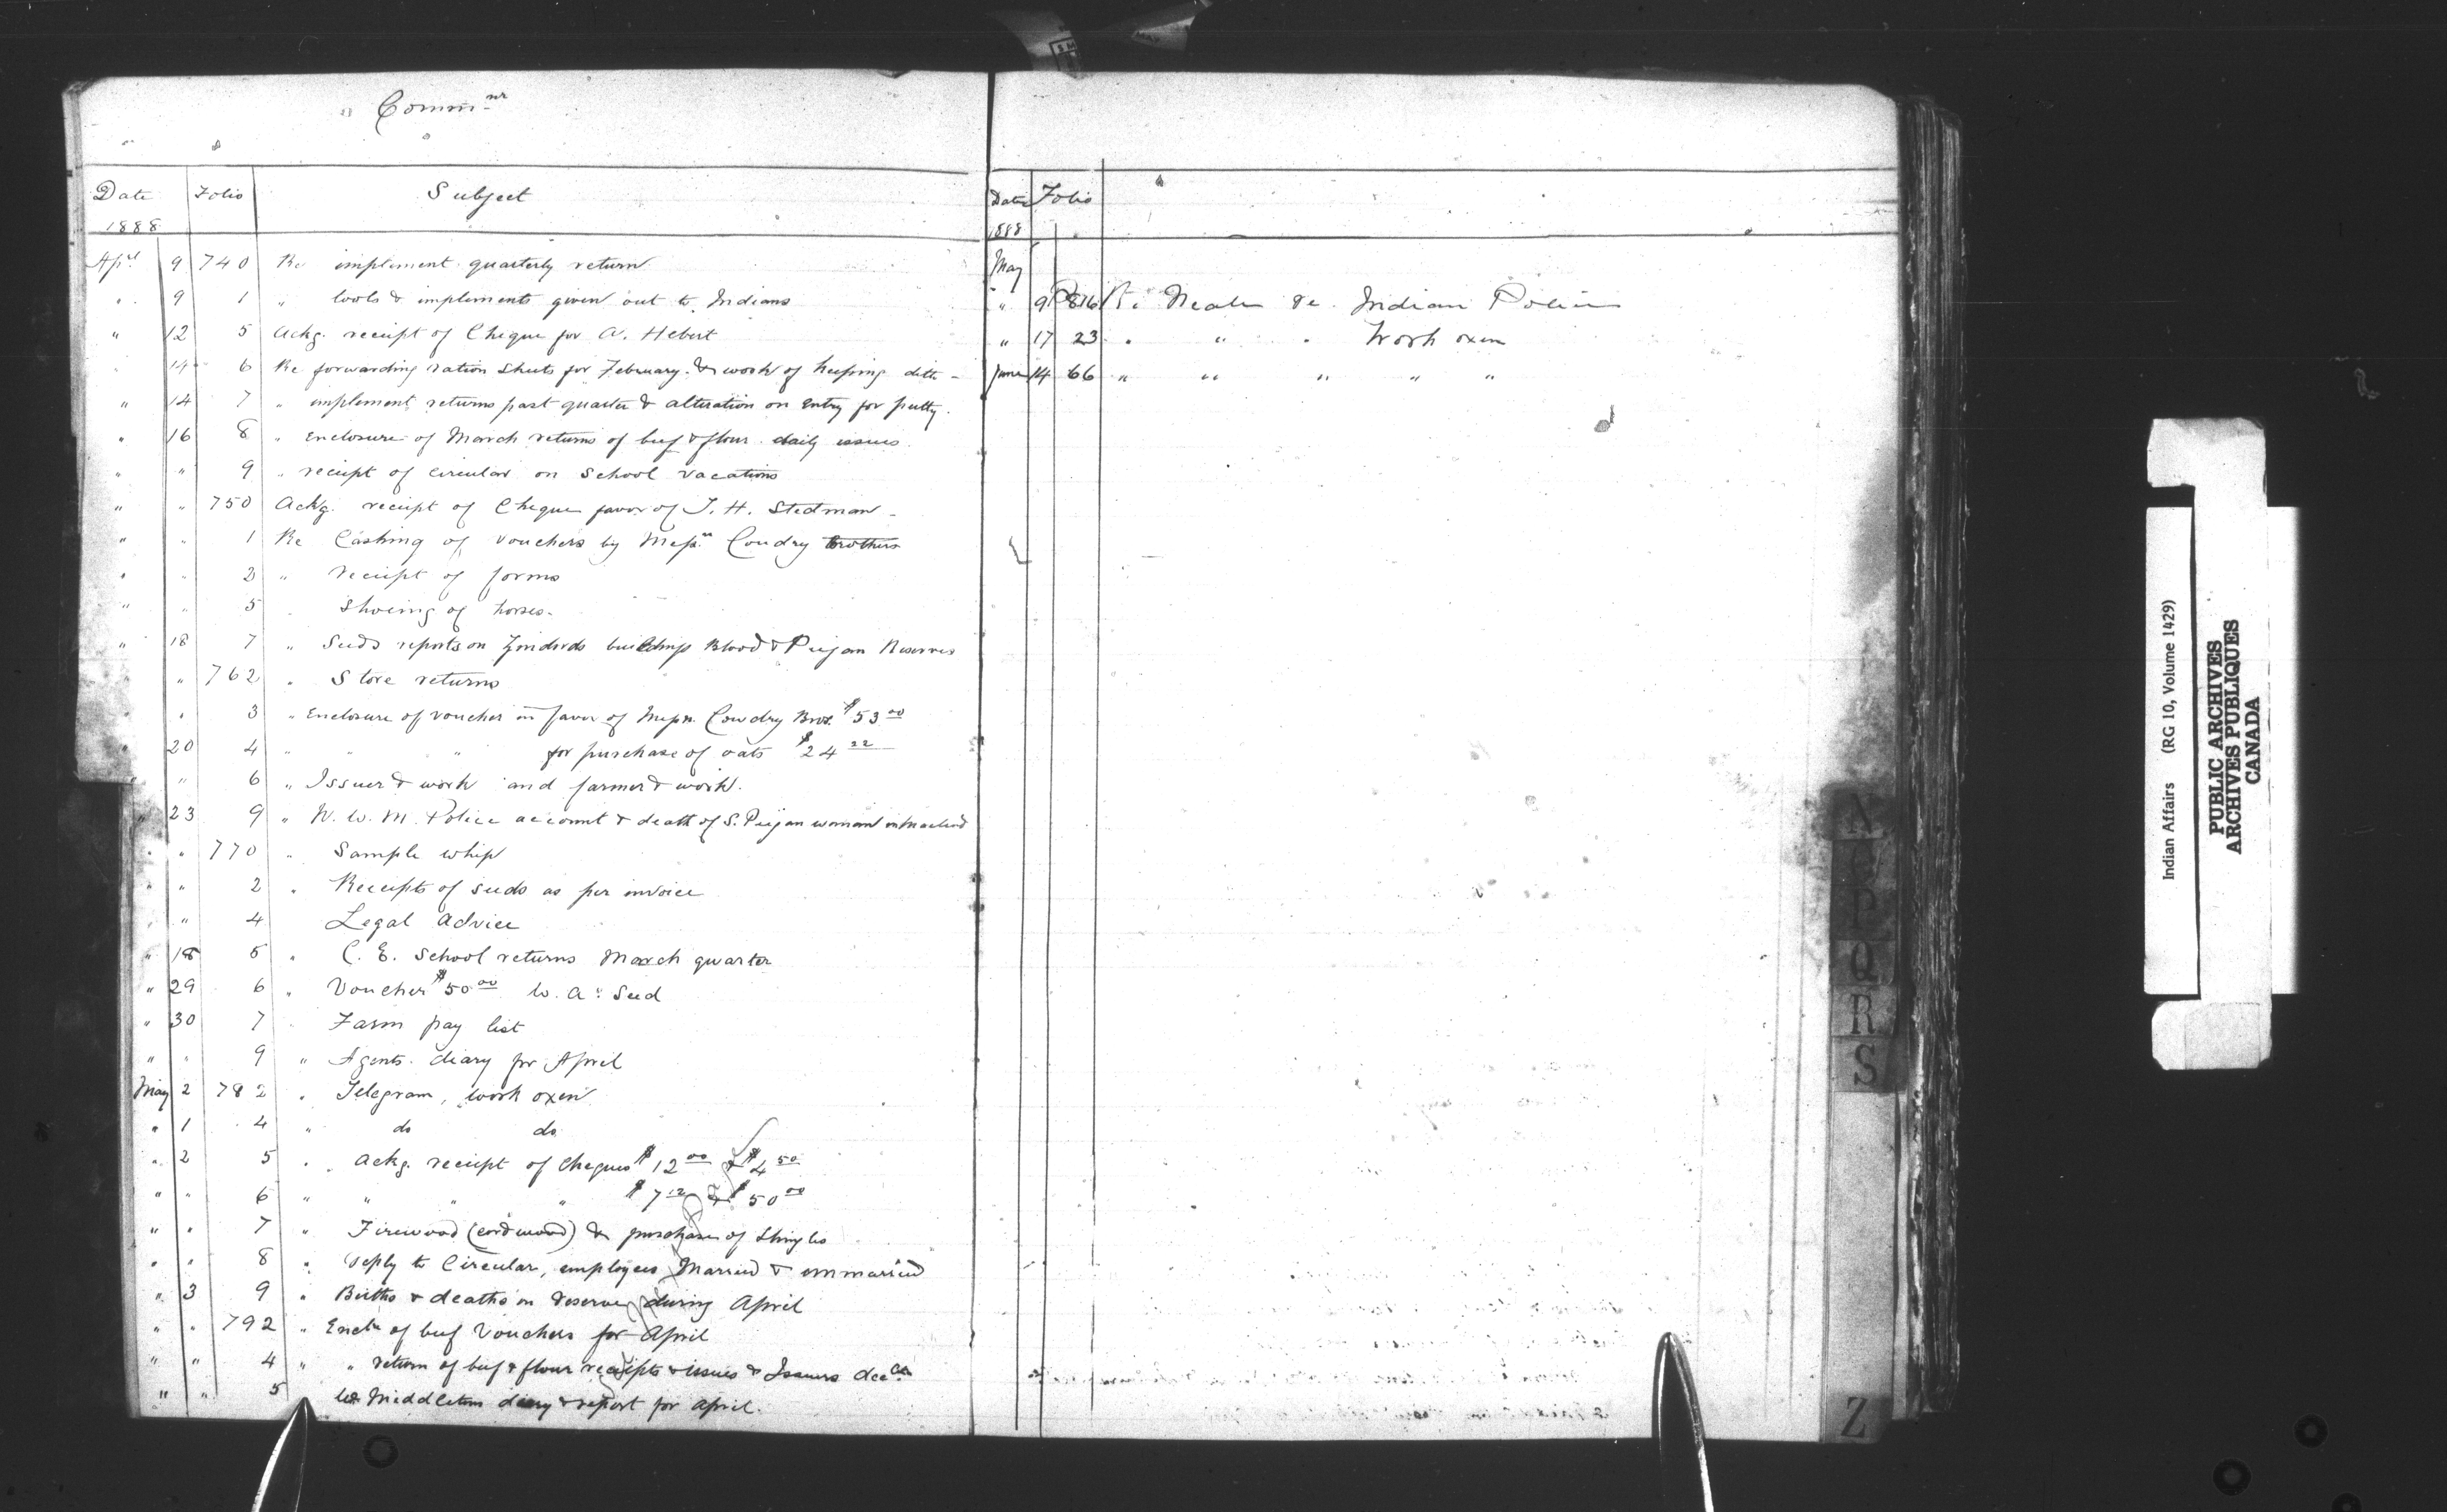 Comm nr
Date Folio Subject
1888
Apl 9 740 Re implement quarterly return
" 9 1 " tools & implements given out to Indians
" 12 5 Ackg. receipt of Cheque for A. Hebert
" 14 6 Re forwarding ration sheets for February & work of keeping ditto -
" 14 7 " implement returns past quarter & alteration on entry for putty.
" 16 8 " Enclosure of March returns of beef & flour daily issues
" " 9 " receipt of circular on School vacations
" " 750 Ackg. receipt of Cheque favor of J. H. Stedman -
" " 1 Re Cashing of vouchers by Messrs Coudry Brothers
" " 2 " receipt of forms
" " 5 . Shoeing of horses -
" 18 7 " reports on buildings Blood & Piegan Reserves
" 762 " Store returns
" 3 " Enclosure of voucher in favor of Messrs. Cowdry Bros. $53 00
" 20 4 " " " for purchase of oats $24 22
" 6 " Issuer & work and farmer & work.
" 23 9 " N. W. M. Police account & death of S. Piegan woman in Macleod
" " 770 " Sample whip
" " 2 " Receipts of seeds as per invoice
" " 4 Legal advice
" 18 5 " C. E. School returns March quarter
" 29 6 " Voucher $50 00 W. A. Seed
" 30 7 " Farm pay list
" " 9 " Agents diary for April
May 2 782 " Telegram, work oxen
" 1 4 " do do
" 2 5 " Ackg. receipt of Cheques $12 00 & $4 50
" " 6 " " " " $7 12 & $50 00
" " 7 " Firewood (cordwood) & purchase of shingles
" " 8 " reply to Circular, employees Married & unmarried
" 3 9 " Births & deaths on reserve during April
" " 792 " Encl. of beef Vouchers for April
" " 4 " " return of beef & flour receipts & issues & Issuers
" " 5 Middletons diary & report for April.
Date Folio
1888
May
" 9 816 Re Neale Indian Police
" 17 23 " " " Work oxen
June 14 66 " " " " "
N
O
P
Q
R
S
Z
Indian Affairs (RG 10, Volume 1429)
PUBLIC ARCHIVES
ARCHIVES PUBLIQUES
CANADA